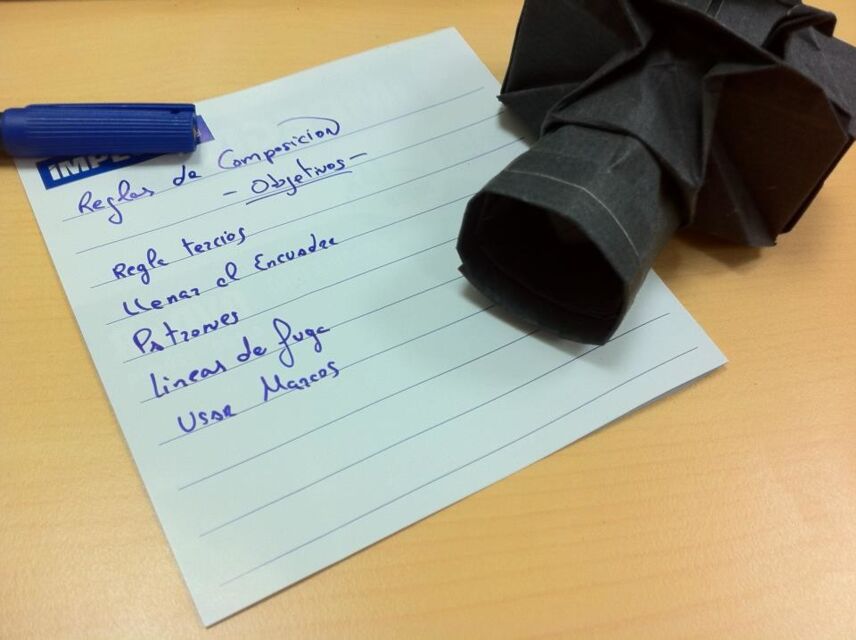 IMPE
Reglas de Composicion
- Objetivos -
Regla tercios
Llenar el Encuadre
Patrones
Lineas de fuga
Usar Marcos